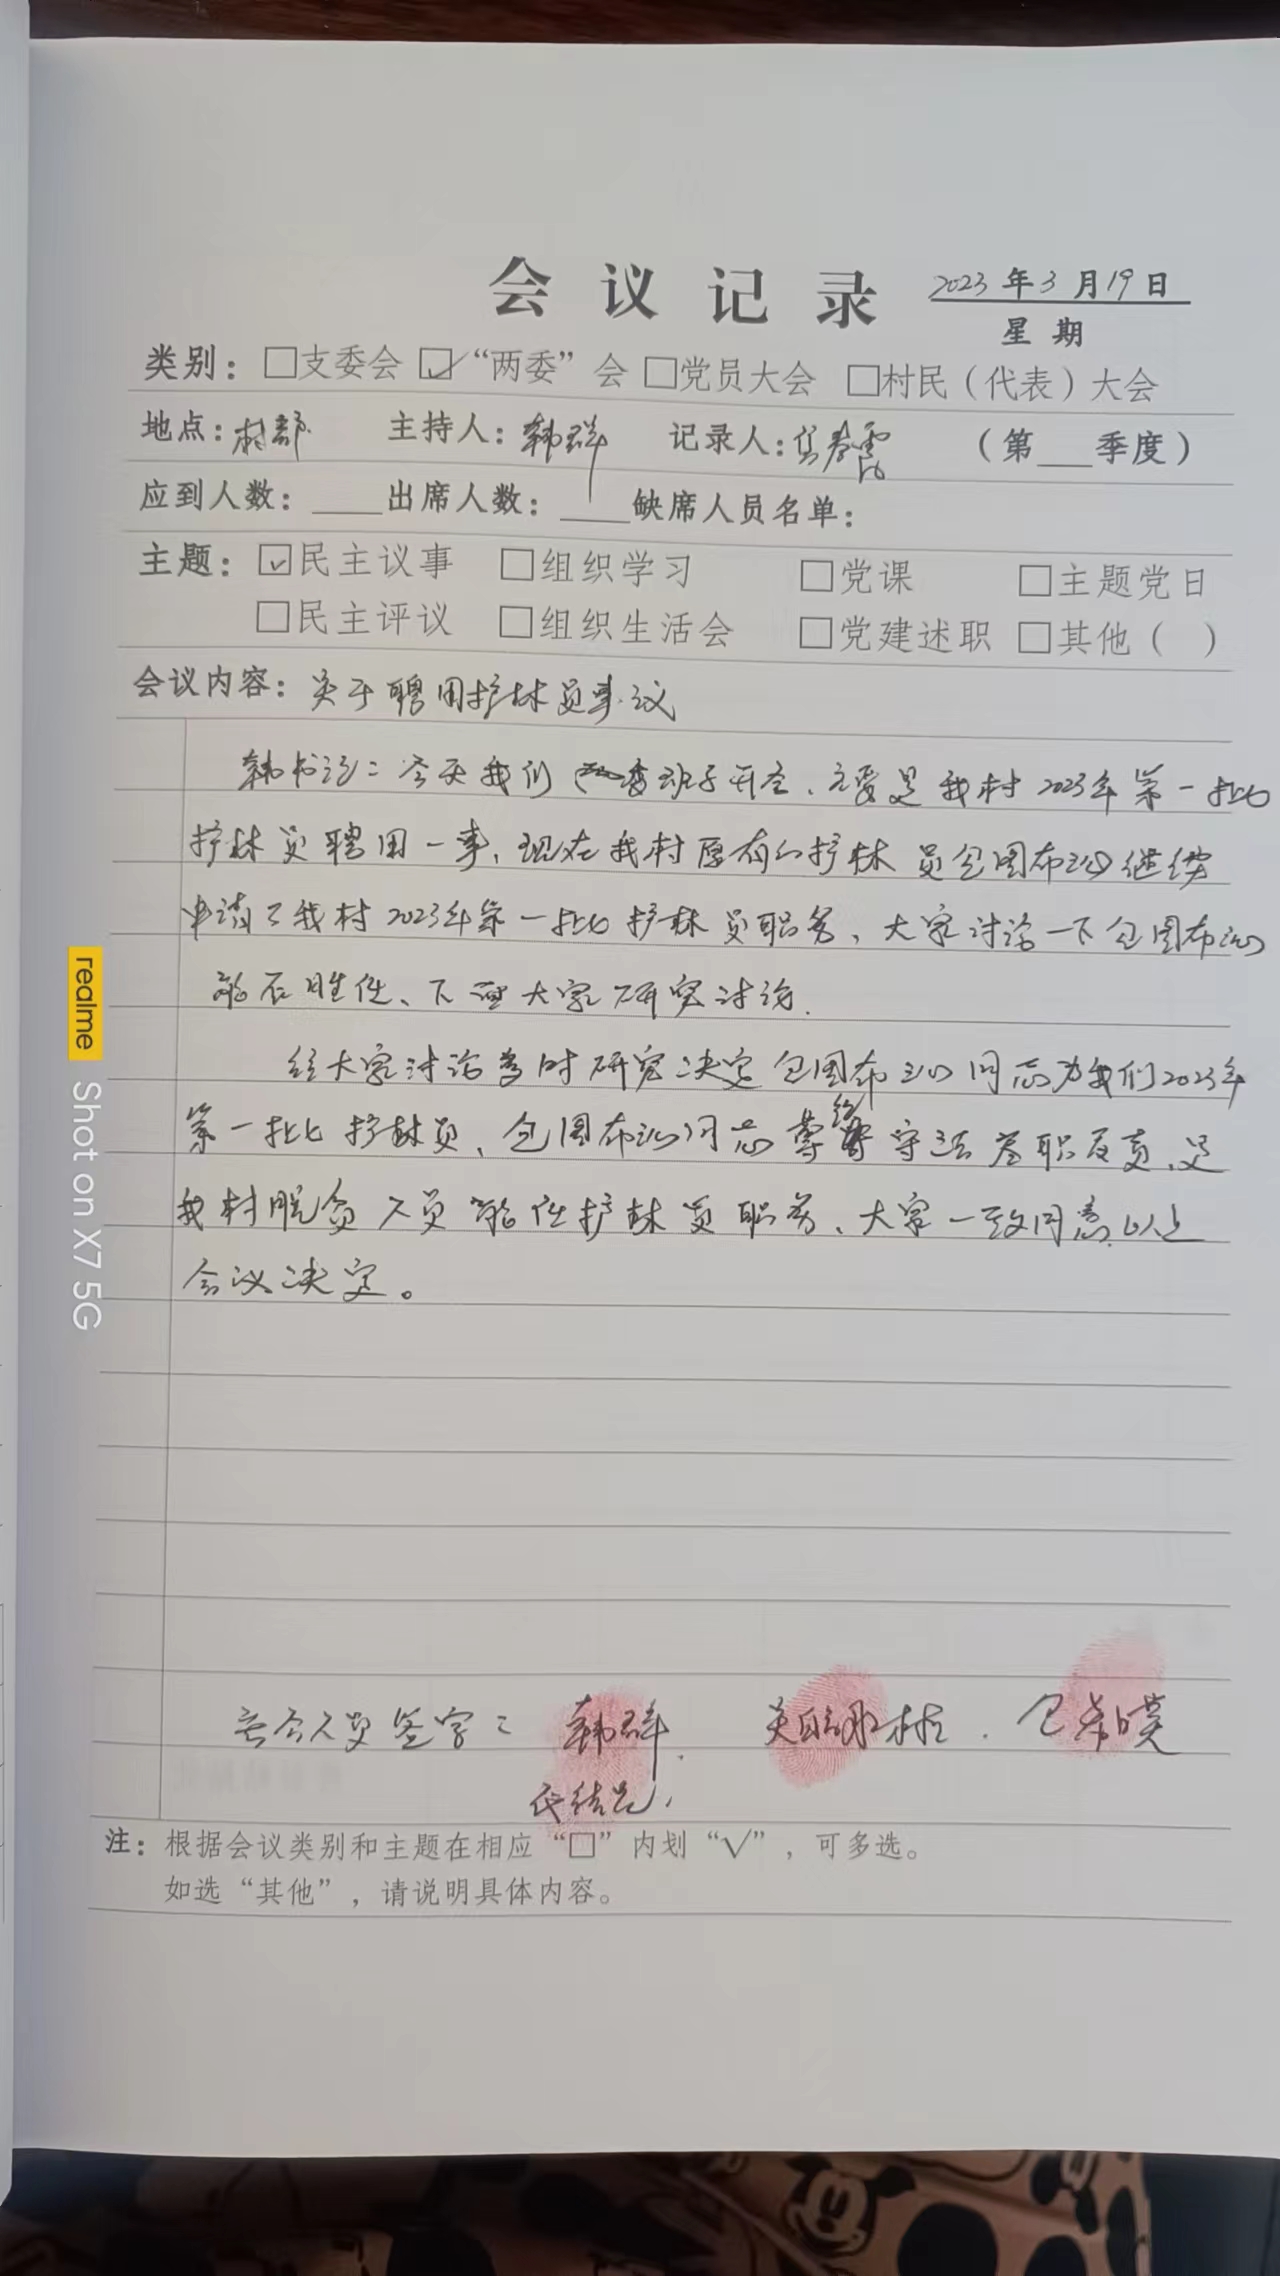 会议记录 2023年3月19日
星期
类别：□支委会 ☑“两委”会 □党员大会 □村民（代表）大会
地点：村部 主持人：韩群 记录人： （第___季度）
应到人数：____出席人数：____缺席人员名单：
主题：☑民主议事 □组织学习 □党课 □主题党日
□民主评议 □组织生活会 □党建述职 □其他（ ）
会议内容：关于聘用护林员事议
韩书记：今天我们 班子开会、主要是我村2023年第一批
护林员聘用一事，现在我村原有的护林员包图布 继续
申请了我村2023年第一批护林员职务、大家讨论一下包图布
能否胜任、下面大家研究讨论.
经大家讨论 研究决定包图布 同志为我们2023年
第一批护林员、包图布 同志 守法 职 责、是
我村脱贫人员能任护林员职务、大家一致同意以上
会议决定。
参会人员签字： 韩群、 包

注：根据会议类别和主题在相应“□”内划“√”，可多选。
如选“其他”，请说明具体内容。
realme Shot on X7 5G